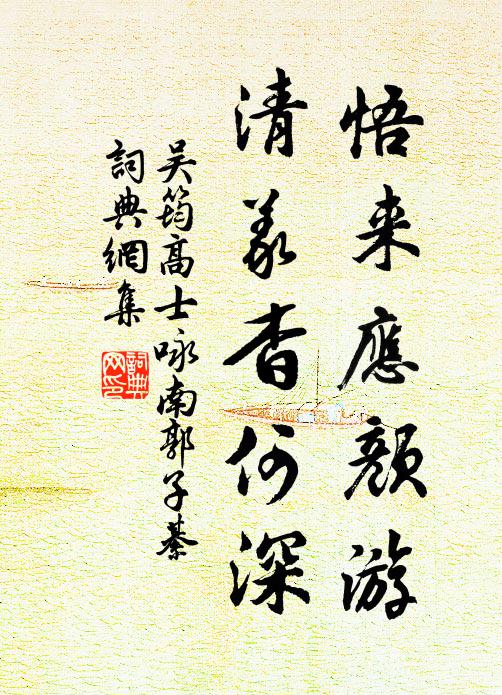 悟来應顏游
清義杳何深
吴筠高士咏南郭子綦
詞典網集
詞典网印